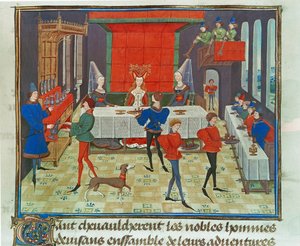 Tant cheuaulcherent les nobles hommes
demsans ensamble de leurs aduentures